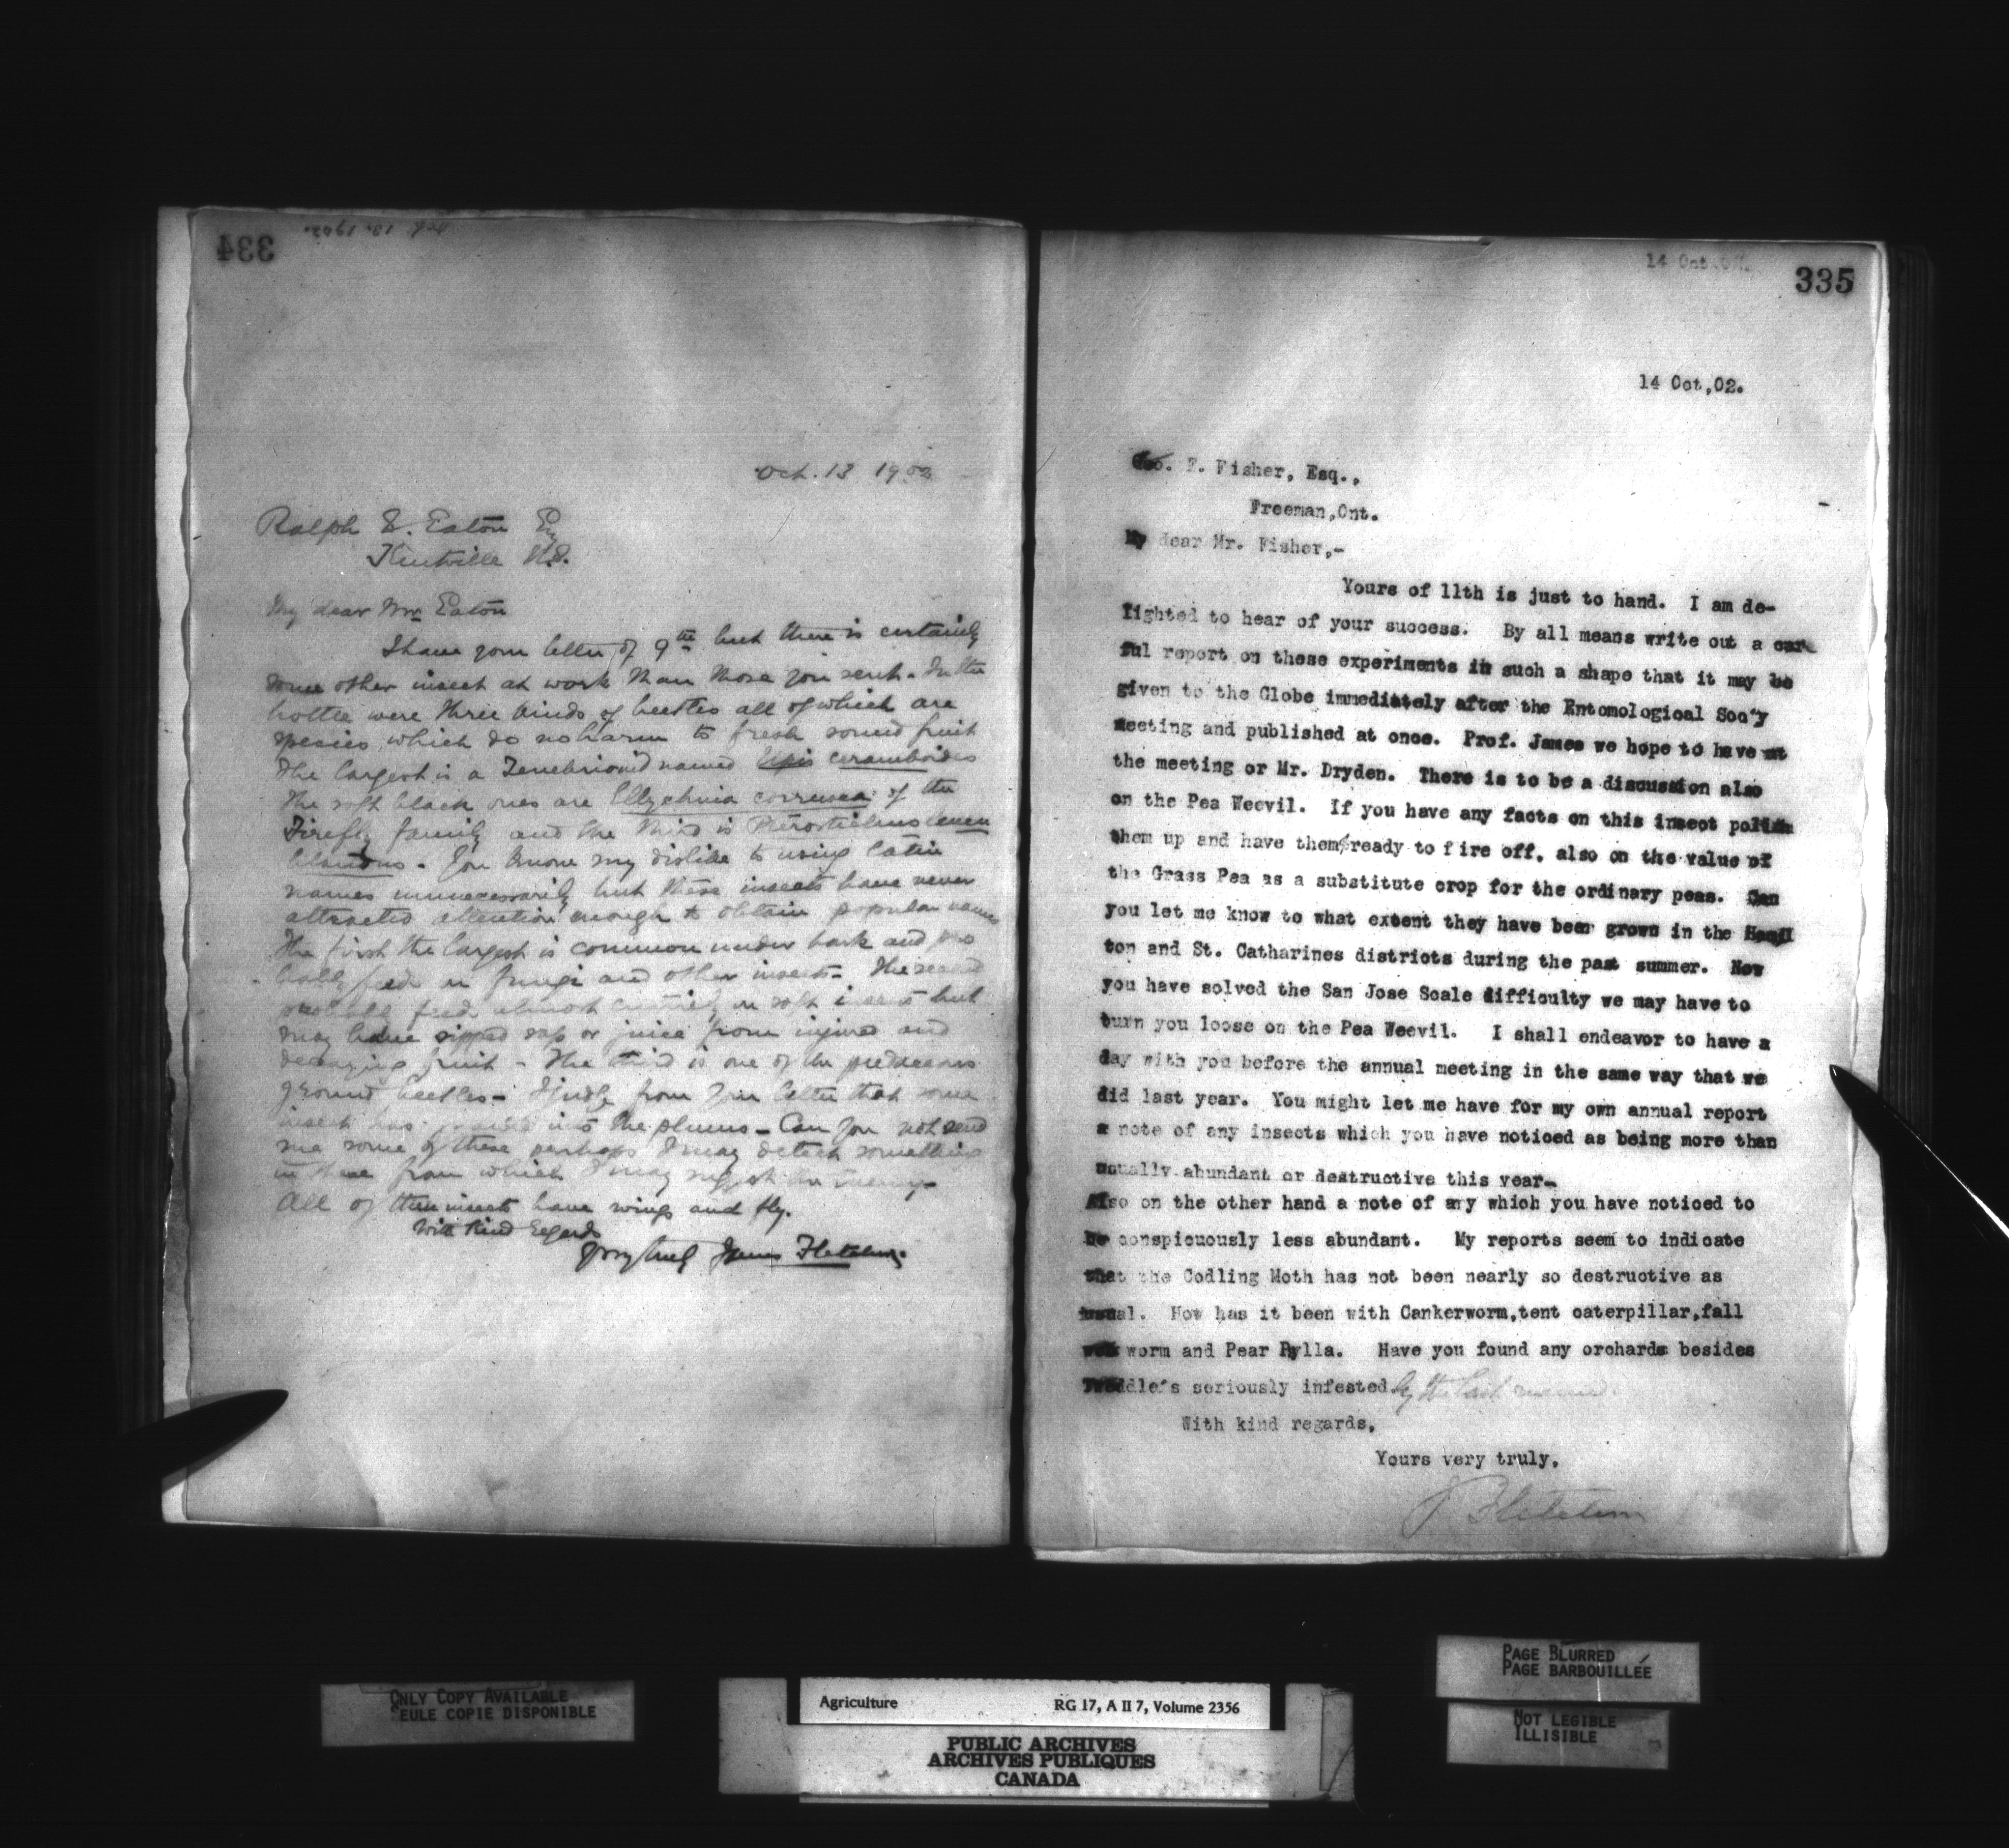 334
Oct. 13 1902
Oct. 13 1902
Ralph S. Eaton Esq
Kentville N.S.
My dear Mr Eaton
I have your letter of 9th but there is certainly
some other insect at work than those you sent. In the
bottle were three kinds of beetles all of which are
species which do no harm to fresh sound fruit
the largest is a Tenebrionid named Upis ceramboides
The soft black ones are Ellychnia corrusca of the
Firefly family and the third is Pterostichus
You know my dislike to using latin
names unnecessarily but these insects have never
attracted attention enough to obtain popular names
The first the largest is common under bark and pro
bably feed on fungi and other insects – The second
probably feed almost entirely on soft insects but
may have sipped sap or juice from injured and
decaying fruit – The third is one of the predaceous
ground beetles – I judge from your letter that some
insect has into the plums – Can you not send
me some of these perhaps I may detect something
in these from which I may suggest the enemy –
All of these insects have wings and fly.
With kind regards
Yours truly James Fletcher.
14 Oct.02.
335
14 Oct,02.
Geo. E. Fisher, Esq.,
Freeman,Ont.
My dear Mr. Fisher,-
Yours of 11th is just to hand. I am de-
lighted to hear of your success. By all means write out a care
ful report on these experiments in such a shape that it may be
given to the Globe immediately after the Entomological Soc'y
meeting and published at once. Prof. James we hope to have at
the meeting or Mr. Dryden. There is to be a discussion also
on the Pea Weevil. If you have any facts on this insect polish
them up and have them ready to fire off, also on the value of
the Grass Pea as a substitute crop for the ordinary peas. Can
you let me know to what extent they have been grown in the Hamil
ton and St. Catharines districts during the past summer. Now
you have solved the San Jose Scale difficulty we may have to
turn you loose on the Pea Weevil. I shall endeavor to have a
day with you before the annual meeting in the same way that we
did last year. You might let me have for my own annual report
a note of any insects which you have noticed as being more than
usually abundant or destructive this year-
Also on the other hand a note of any which you have noticed to
be conspicuously less abundant. My reports seem to indicate
that the Codling Moth has not been nearly so destructive as
usual. How has it been with Cankerworm,tent caterpillar,fall
web worm and Pear Pylla. Have you found any orchards besides
seriously infested by the last named.
With kind regards,
Yours very truly,
J Fletcher
ONLY COPY AVAILABLE
EULE COPIE DISPONIBLE
Agriculture RG 17, A II 7, Volume 2356
PUBLIC ARCHIVES
ARCHIVES PUBLIQUES
CANADA
PAGE BLURRED
PAGE BARBOUILLÉE
NOT LEGIBLE
ILLISIBLE